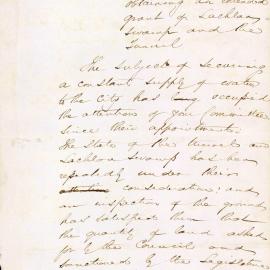 obtaining an extended
grant of Lachlan
Swamp and the
Tunnel
The subject of securing
a constant supply of water
to the City has long occupied
the attention of your Committee
since their appointment.
The state of the tunnel and
Lachlan Swamp has been
repeatedly under their
consideration; and
an inspection of the ground
has satisfied them that
the quantity of land asked
for by the Council and
sanctioned by the Legislative